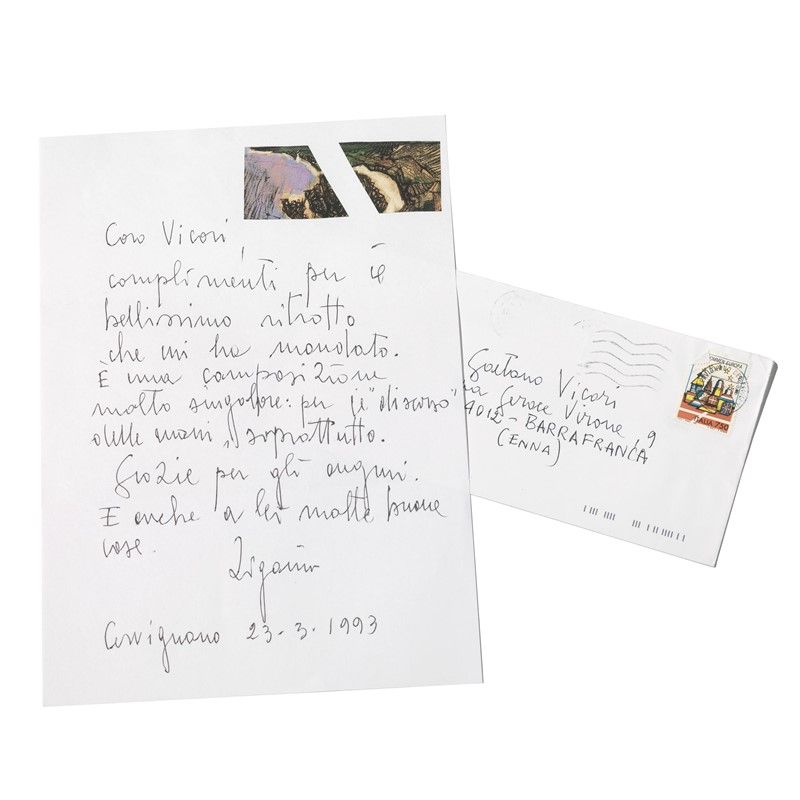 Caro Vicari,
complimenti per il
bellissimo ritratto
che mi ha mandato.
È una composizione
molto singolare: per il "discorso"
delle mani, soprattutto.
Grazie per gli auguri.
E anche a lei molte buone
cose.
Zigaina
Cervignano 23-3-1993
Gaetano Vicari
via Gerace Virone, 9
94012-BARRAFRANCA
(ENNA)
ITALIA 750